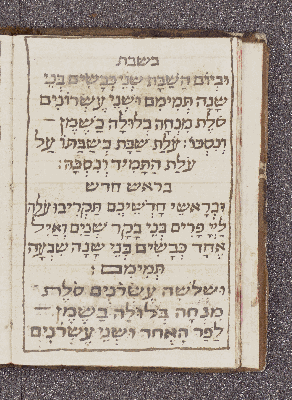 בשבת
וּבְיוֹם הַשַּׁבָּת שְׁנֵי כְבָשִׂים בְּנֵי
שָׁנָה תְּמִימִם וּשְׁנֵי עֶשְׂרוֹנִים
סֹלֶת מִנְחָה בְּלוּלָה בַשֶּׁמֶן
וְנִסְכּוֹ: עֹלַת שַׁבַּת בְּשַׁבַּתּוֹ עַל
עֹלַת הַתָּמִיד וְנִסְכָּהּ:
בראש חדש
וּבְרָאשֵׁי חָדְשֵׁיכֶם תַּקְרִיבוּ עֹלָה
לַיְיָ פָּרִים בְּנֵי בָקָר שְׁנַיִם וְאַיִל
אֶחָד כְּבָשִׂים בְּנֵי שָׁנָה שִׁבְעָה
תְּמִימִם:
וּשְׁלֹשָׁה עֶשְׂרֹנִים סֹלֶת
מִנְחָה בְּלוּלָה בַשֶּׁמֶן
לַפָּר הָאֶחָד וּשְׁנֵי עֶשְׂרֹנִים